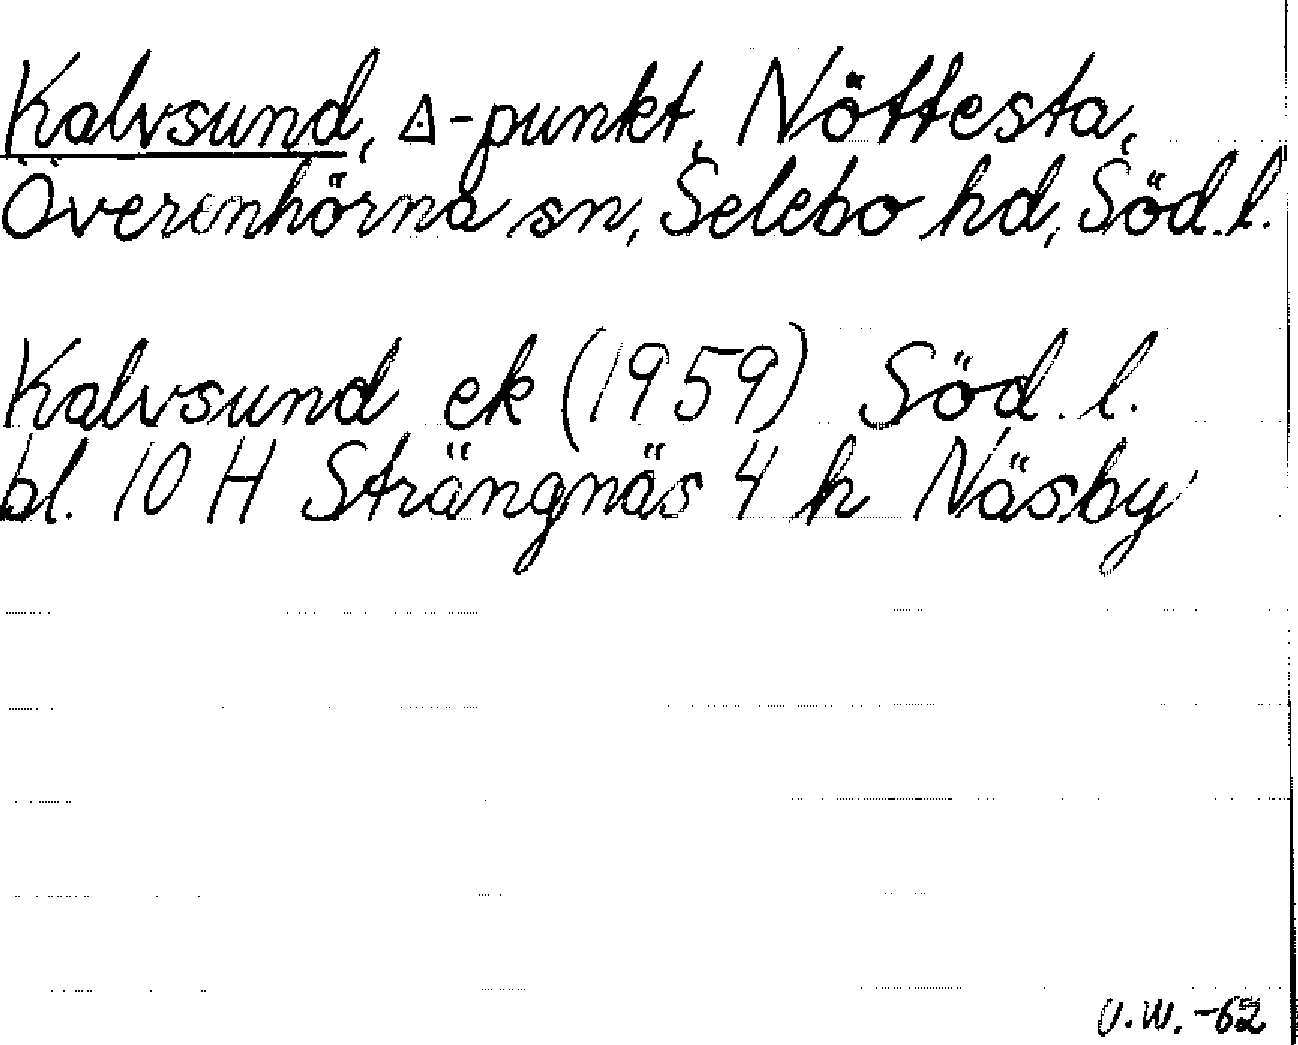 Kalvsund, △-punkt, Nöttesta,
Överenhörna sn, Selebo hd, Söd.l.
Kalvsund ek (1959) Söd. l.
bl. 10 H Strängnäs 4 h Näsby
U.W. -62